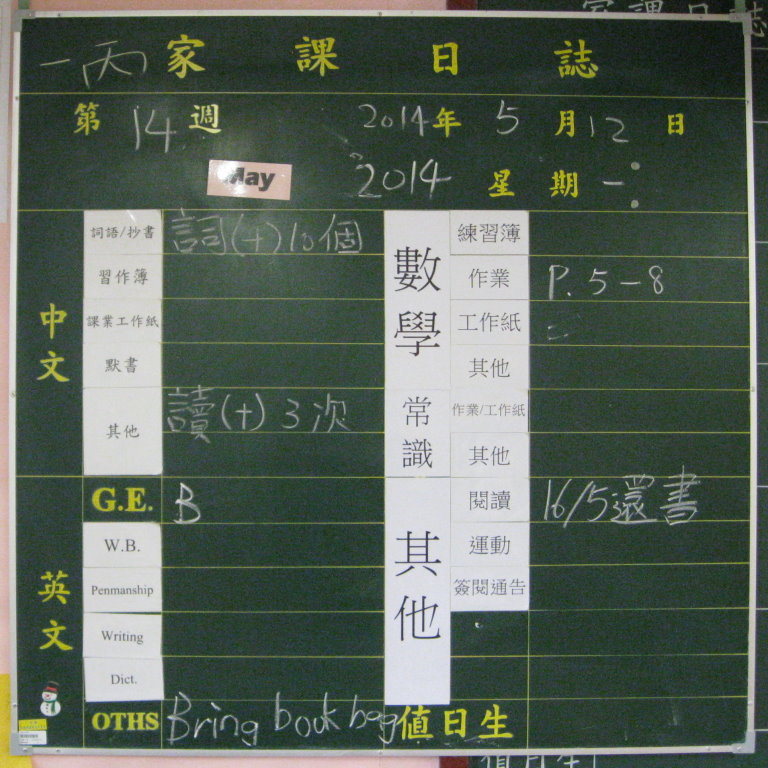 一丙家課日誌
第14週 2014年5月12日
May 2014 星期一
中文
詞語/抄書 詞(十)10個
習作簿
課業工作紙
默書
其他 讀(十)3次
英文
G.E. B
W.B.
Penmanship
Writing
Dict.
OTHS Bring book bag
數學
練習簿
作業 P. 5-8
工作紙 二
其他
常識
作業/工作紙
其他
其他
閱讀 16/5還書
運動
簽閱通告
值日生